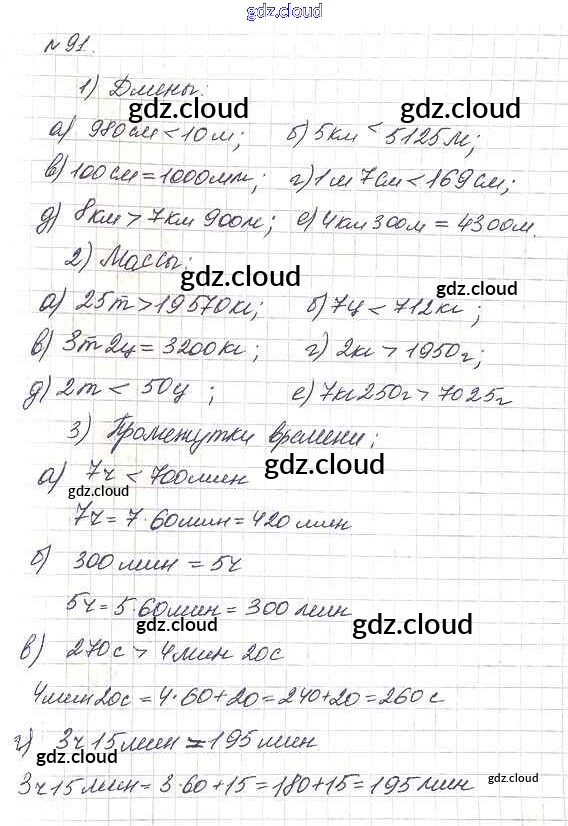 gdz.cloud
№91.
1) Длины:
gdz.cloud gdz.cloud
а) 980см < 10м; б) 5км < 5125м;
в) 100см = 1000мм; г) 1м 7см < 169см;
д) 8км > 7км 900м; е) 4км 300м = 4300м.
2) Массы:
gdz.cloud gdz.cloud
а) 25т > 19570кг; б) 7ц < 712кг;
в) 3т 2ц = 3200кг; г) 2кг > 1950г;
д) 2т < 50ц; е) 7кг 250г > 7025г
3) Промежутки времени;
gdz.cloud
а) 7ч < 700мин
gdz.cloud
7ч = 7·60мин = 420мин
б) 300мин = 5ч
5ч = 5·60мин = 300мин
gdz.cloud gdz.cloud
в) 270с > 4мин 20с
4мин 20с = 4·60+20 = 240+20 = 260с
г) 3ч 15мин = 195мин
gdz.cloud
3ч 15мин = 3·60+15 = 180+15 = 195мин
gdz.cloud